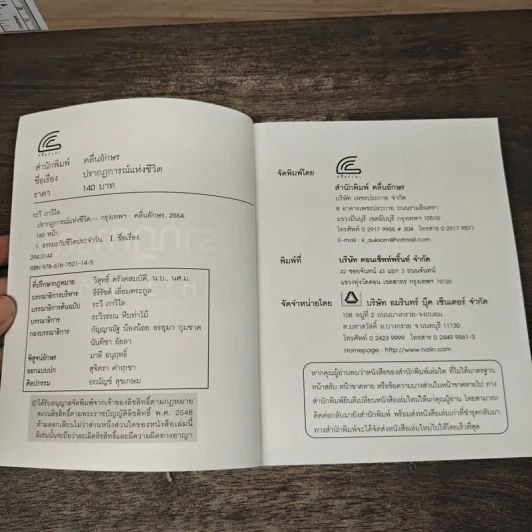 คลื่นอักษร
สำนักพิมพ์ คลื่นอักษร
ชื่อเรื่อง ปรากฏการณ์แห่งชีวิต
ราคา 140 บาท
ระวี ภาวิไล.
ปรากฏการณ์แห่งชีวิต.-- กรุงเทพฯ : คลื่นอักษร, 2564.
160 หน้า.
1. ธรรมะกับชีวิตประจำวัน. I. ชื่อเรื่อง.
294.3144
ISBN 978-616-7521-14-5
ที่ปรึกษากฎหมาย วิสุทธิ์ ตรังคสมบัติ, น.บ., นศ.ม.
บรรณาธิการบริหาร ธีร์รัชต์ เลี่ยมตระกูล
บรรณาธิการต้นฉบับ ระวี ภาวิไล
บรรณาธิการ ระวิวรรณ หีบท่าไม้
กองบรรณาธิการ กัญญาณัฐ น้องน้อย อรอุมา กุมขาด
นันทิชา อัยลา
พิสูจน์อักษร มาลี อนุฤทธิ์
ออกแบบปก สุจิตรา คำฤาชา
ศิลปกรรม อรณัญช์ สุขเกษม
©ได้รับอนุญาตจัดพิมพ์จากเจ้าของลิขสิทธิ์ตามกฎหมาย
สงวนลิขสิทธิ์ตามพระราชบัญญัติลิขสิทธิ์ พ.ศ. 2548
ห้ามลอกเลียนไม่ว่าส่วนหนึ่งส่วนใดของหนังสือเล่มนี้
มิเช่นนั้นจะถือว่าละเมิดลิขสิทธิ์และมีความผิดทางอาญา
จัดพิมพ์โดย
คลื่นอักษร
สำนักพิมพ์ คลื่นอักษร
บริษัท เพชรประกาย จำกัด
8 อาคารเพชรประกาย ถนนรามอินทรา
แขวงมีนบุรี เขตมีนบุรี กรุงเทพฯ 10510
โทรศัพท์ 0 2917 9955 # 304 โทรสาร 0 2917 9571
E-mail : k_auksorn@hotmail.com
พิมพ์ที่ บริษัท คอนเซ็พท์พริ้นท์ จำกัด
42 ซอยจันทน์ 43 แยก 3 ถนนจันทน์
แขวงทุ่งวัดดอน เขตสาทร กรุงเทพฯ 10120
จัดจำหน่ายโดย บริษัท อมรินทร์ บุ๊ค เซ็นเตอร์ จำกัด
108 หมู่ที่ 2 ถนนบางกรวย-จงถนอม
ต.มหาสวัสดิ์ อ.บางกรวย จ.นนทบุรี 11130
โทรศัพท์ 0 2423 9999 โทรสาร 0 2449 9561-3
Homepage : http://www.naiin.com
หากคุณผู้อ่านพบว่าหนังสือของสำนักพิมพ์เล่มใด ที่ไม่ได้มาตรฐาน
หน้าสลับ หน้าขาดหาย หรือข้อความบางส่วนในหน้าขาดหายไป ทาง
สำนักพิมพ์ยินดีเปลี่ยนหนังสือเล่มใหม่ให้แก่คุณผู้อ่าน โดยสามารถ
ติดต่อกลับมายังสำนักพิมพ์ พร้อมส่งหนังสือเล่มเก่าที่ชำรุดกลับมา
ทางสำนักพิมพ์จะได้จัดส่งหนังสือเล่มใหม่ไปให้โดยเร็วที่สุด